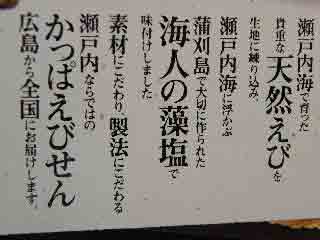 瀬戸内海で育った
貴重な天然えびを
生地に練り込み、
瀬戸内海に浮かぶ
蒲刈島で大切に作られた
海人の藻塩で
味付けしました
素材にこだわり、製法にこだわる
瀬戸内ならではの
かっぱえびせん
広島から全国にお届けします。